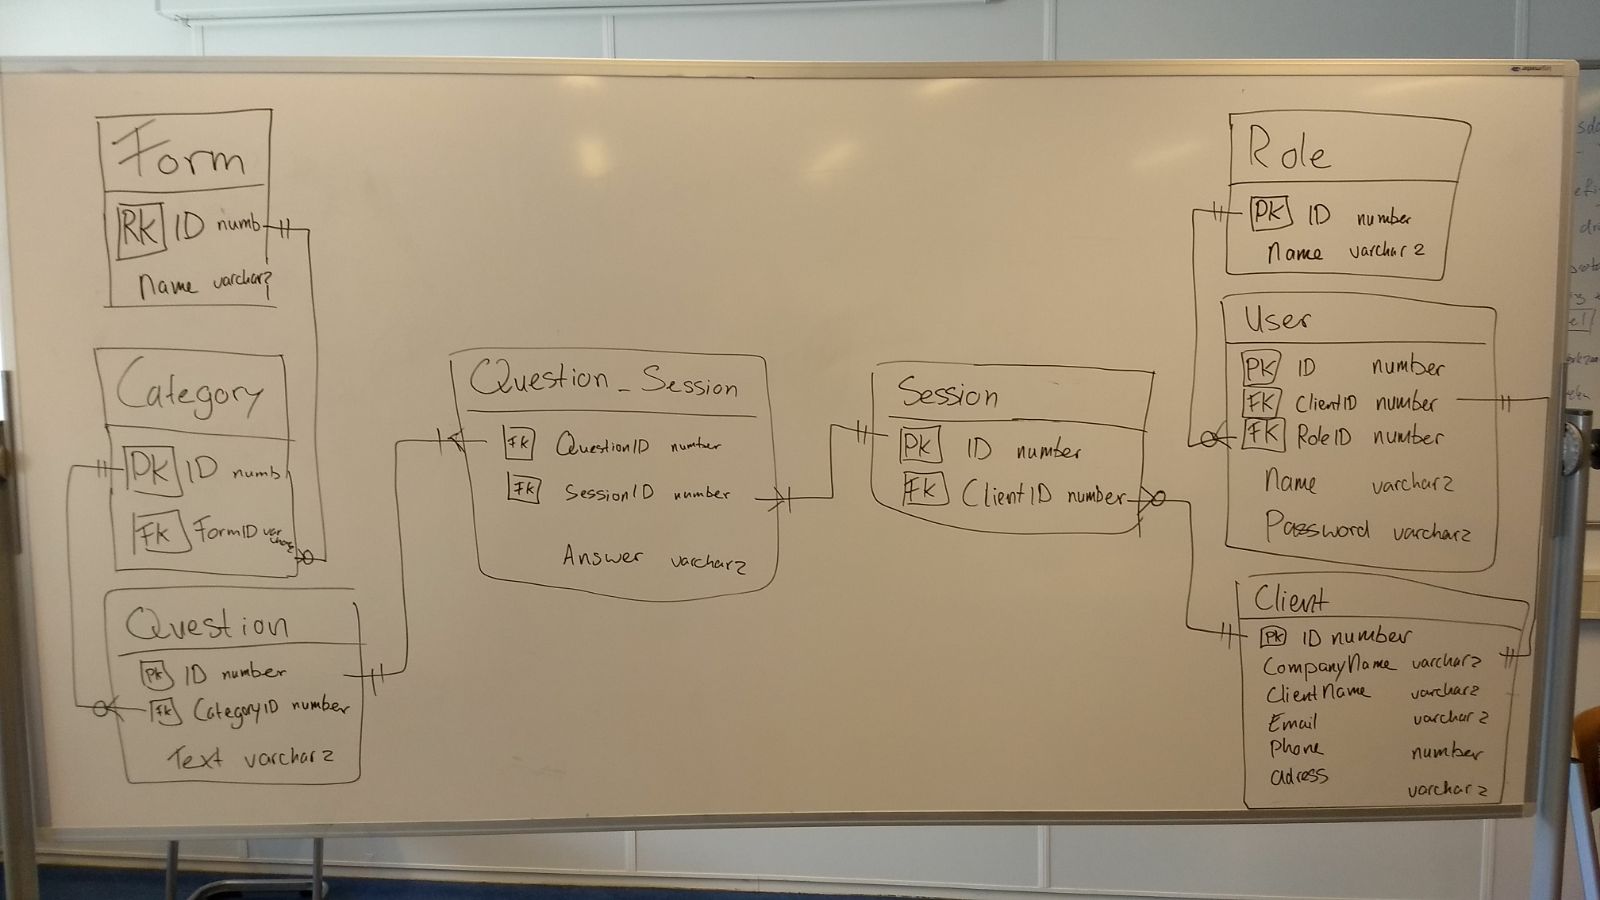 Form
RK ID numb
Name varchar2
Category
PK ID numb
FK FormID varchar2
Question
PK ID number
FK CategoryID number
Text varchar2
Question_Session
FK QuestionID number
FK SessionID number
Answer varchar2
Session
PK ID number
FK ClientID number
Role
PK ID number
Name varchar2
User
PK ID number
FK ClientID number
FK RoleID number
Name varchar2
Password varchar2
Client
PK ID number
CompanyName varchar2
ClientName varchar2
Email varchar2
Phone number
adress
varchar2